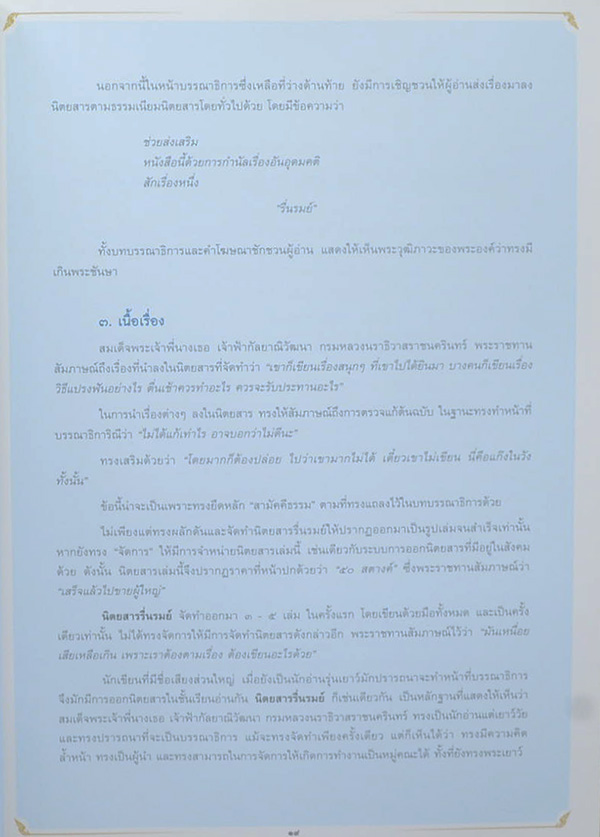 นอกจากนี้ในหน้าบรรณาธิการซึ่งเหลือที่ว่างด้านท้าย ยังมีการเชิญชวนให้ผู้อ่านส่งเรื่องมาลง
นิตยสารตามธรรมเนียมนิตยสารโดยทั่วไปด้วย โดยมีข้อความว่า
ช่วยส่งเสริม
หนังสือนี้ด้วยการกำนัลเรื่องอันอุดมคติ
สักเรื่องหนึ่ง
"รื่นรมย์"
ทั้งบทบรรณาธิการและคำโฆษณาชักชวนผู้อ่าน แสดงให้เห็นพระวุฒิภาวะของพระองค์ว่าทรงมี
เกินพระชันษา
๓. เนื้อเรื่อง
สมเด็จพระเจ้าพี่นางเธอ เจ้าฟ้ากัลยาณิวัฒนา กรมหลวงนราธิวาสราชนครินทร์ พระราชทาน
สัมภาษณ์ถึงเรื่องที่นำลงในนิตยสารที่จัดทำว่า "เขาก็เขียนเรื่องสนุกๆ ที่เขาไปได้ยินมา บางคนก็เขียนเรื่อง
วิธีแปรงฟันอย่างไร ตื่นเช้าควรทำอะไร ควรจะรับประทานอะไร"
ในการนำเรื่องต่างๆ ลงในนิตยสาร ทรงให้สัมภาษณ์ถึงการตรวจแก้ต้นฉบับ ในฐานะทรงทำหน้าที่
บรรณาธิการิณีว่า "ไม่ได้แก้เท่าไร อาจบอกว่าไม่ดีนะ"
ทรงเสริมด้วยว่า "โดยมากก็ต้องปล่อย ไปว่าเขามากไม่ได้ เดี๋ยวเขาไม่เขียน นี่คือแก๊งในวัง
ทั้งนั้น"
ข้อนี้น่าจะเป็นเพราะทรงยึดหลัก "สามัคคีธรรม" ตามที่ทรงแถลงไว้ในบทบรรณาธิการด้วย
ไม่เพียงแต่ทรงผลักดันและจัดทำนิตยสารรื่นรมย์ให้ปรากฏออกมาเป็นรูปเล่มจนสำเร็จเท่านั้น
หากยังทรง "จัดการ" ให้มีการจำหน่ายนิตยสารเล่มนี้ เช่นเดียวกับระบบการออกนิตยสารที่มีอยู่ในสังคม
ด้วย ดังนั้น นิตยสารเล่มนี้จึงปรากฏราคาที่หน้าปกด้วยว่า "๕๐ สตางค์" ซึ่งพระราชทานสัมภาษณ์ว่า
"เสร็จแล้วไปขายผู้ใหญ่"
นิตยสารรื่นรมย์ จัดทำออกมา ๓ - ๕ เล่ม ในครั้งแรก โดยเขียนด้วยมือทั้งหมด และเป็นครั้ง
เดียวเท่านั้น ไม่ได้ทรงจัดการให้มีการจัดทำนิตยสารดังกล่าวอีก พระราชทานสัมภาษณ์ไว้ว่า "มันเหนื่อย
เสียเหลือเกิน เพราะเราต้องตามเรื่อง ต้องเขียนอะไรด้วย"
นักเขียนที่มีชื่อเสียงส่วนใหญ่ เมื่อยังเป็นนักอ่านรุ่นเยาว์มักปรารถนาจะทำหน้าที่บรรณาธิการ
จึงมักมีการออกนิตยสารในชั้นเรียนอ่านกัน นิตยสารรื่นรมย์ ก็เช่นเดียวกัน เป็นหลักฐานที่แสดงให้เห็นว่า
สมเด็จพระเจ้าพี่นางเธอ เจ้าฟ้ากัลยาณิวัฒนา กรมหลวงนราธิวาสราชนครินทร์ ทรงเป็นนักอ่านแต่เยาว์วัย
และทรงปรารถนาที่จะเป็นบรรณาธิการ แม้จะทรงจัดทำเพียงครั้งเดียว แต่ก็เห็นได้ว่า ทรงมีความคิด
ล้ำหน้า ทรงเป็นผู้นำ และทรงสามารถในการจัดการให้เกิดการทำงานเป็นหมู่คณะได้ ทั้งที่ยังทรงพระเยาว์